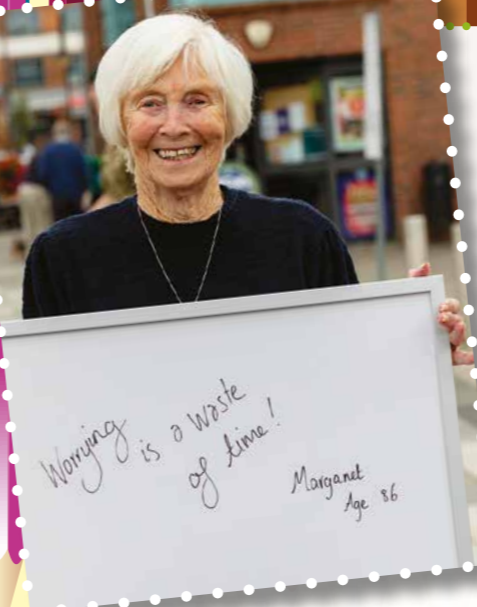 Worrying is a waste
of time!
Margaret
Age 86